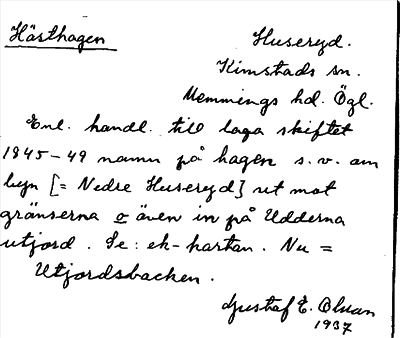 Hästhagen
Huseryd.
Kimstads sn.
Memmings hd. Ögl.
Enl. handl. till laga skiftet
1845-49 namn på hagen s.v. om
byn [= Nedre Huseryd] ut mot
gränserna o även in på Udderna
utjord. Se: ek-kartan. Nu =
Utjordsbacken.
Gustaf E. Olsson
1937